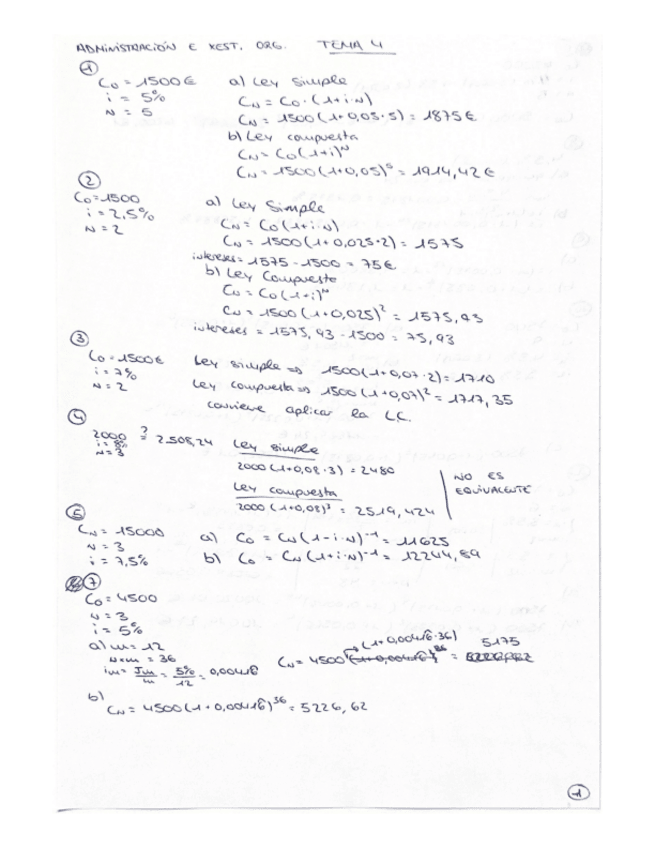 ADMINISTRACIÓN E XEST. ORG. TEMA 4
1
C₀ = 1500€ a) Ley simple
i = 5% Cₙ = C₀ · (1+i·n)
n = 5 Cₙ = 1500(1+0,05·5) = 1875€
b) Ley compuesta
Cₙ = C₀(1+i)ⁿ
Cₙ = 1500(1+0,05)⁵ = 1914,42€
2
C₀=1500 a) Ley Simple
i = 2,5% Cₙ = C₀(1+i·n)
n = 2 Cₙ = 1500(1+0,025·2) = 1575
intereses = 1575 - 1500 = 75€
b) Ley Compuesta
Cₙ = C₀(1+i)ⁿ
Cₙ = 1500(1+0,025)² = 1575,93
intereses = 1575,93 - 1500 = 75,93
3
C₀ = 1500€ Ley simple => 1500(1+0,07·2) = 1710
i = 7% Ley compuesta => 1500(1+0,07)² = 1717,35
n = 2 conviene aplicar la L.C.
4
2000 =? 2.508,24 Ley simple
i = 8% 2000(1+0,08·3) = 2480
n = 3 Ley compuesta
2000(1+0,08)³ = 2519,424
NO ES
EQUIVALENTE
5
Cₙ = 15000 a) C₀ = Cₙ(1-i·n)⁻¹ = 11625
n = 3 b) C₀ = Cₙ(1+i·n)⁻¹ = 12244,89
i = 7,5%
7
C₀ = 4500
n = 3
i = 5%
a) m = 12
n·m = 36
iₘ = Jₘ/m = 5%/12 = 0,00416 Cₙ = 4500 (1+0,00416·36) = 5175
b)
Cₙ = 4500(1+0,00416)³⁶ = 5226,62
1